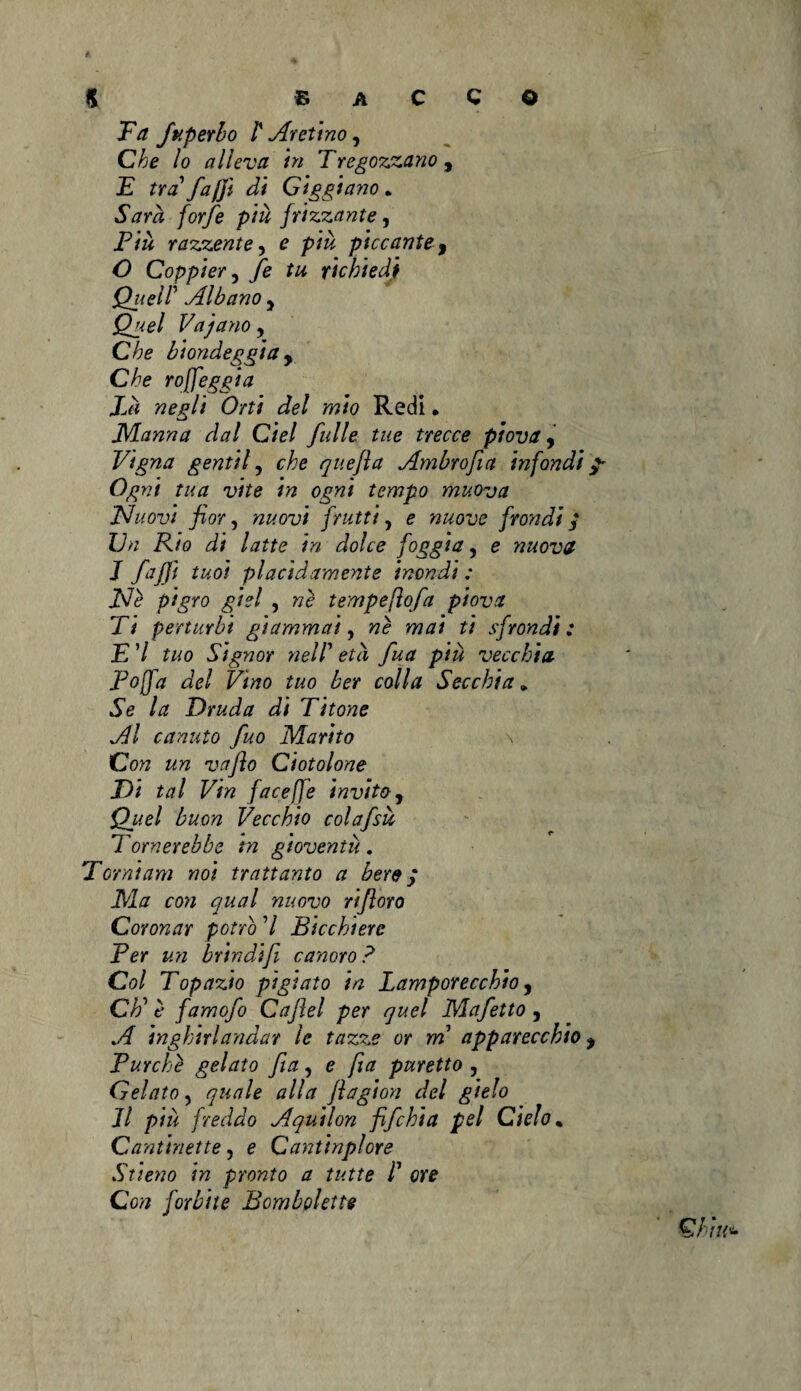 8 BACCO
Fa ſuperbo l' Aretino,
Che lo alleva in Tregozzano,
E tra' ſaſſi di Giggiano.
Sarà forſe più frizzante,
Più razzente, e più piccante,
O Coppier, ſe tu richiedi
Quell' Albano,
Quel Vajano,
Che biondeggia,
Che roſſeggia
Là negli Orti del mio Redi.
Manna dal Ciel ſulle tue trecce piova,
Vigna gentil, che queſta Ambroſia infondi;
Ogni tua vite in ogni tempo muova
Nuovi fior, nuovi frutti, e nuove frondi;
Un Rio di latte in dolce foggia, e nuova
I ſaſſi tuoi placidamente inondi:
Nè pigro giel, nè tempeſtoſa piova
Ti perturbi giammai, nè mai ti sfrondi:
E 'l tuo Signor nell' età ſua più vecchia
Poſſa del Vino tuo ber colla Secchia.
Se la Druda di Titone
Al canuto ſuo Marito
Con un vaſto Ciotolone
Di tal Vin faceſſe invito,
Quel buon Vecchio colaſsù
Tornerebbe in gioventù.
Torniam noi trattanto a bere;
Ma con qual nuovo riſtoro
Coronar potrò 'l Bicchiere
Per un brindiſi canoro?
Col Topazio pigiato in Lamporecchio,
Ch' è famoſo Caſtel per quel Maſetto,
A inghirlandar le tazze or m' apparecchio,
Purchè gelato ſia, e ſia puretto,
Gelato, quale alla ſtagion del gielo
Il più freddo Aquilon fiſchia pel Cielo.
Cantinette, e Cantinplore
Stieno in pronto a tutte l' ore
Con forbite Bombolette
Chiu-